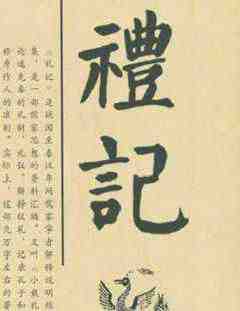 禮記
《礼记》是战国至秦汉年间儒家学者解释说明经
集，是一部儒家思想的资料汇编。又叫《小戴礼
论述先秦的礼制、礼仪，解释仪礼，记录孔子和
修身作人的准则。实际上，这部九万字左右的著